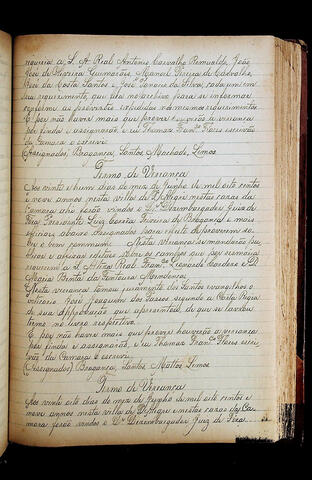 requeria a S. A. Real Antonio Carvalho Remualdo, João
José de Oliveira Guimarães, Manoel Pereira de Carvalho,
José da Costa Santos e José Ignacio da Silva, cada um em
seu requerimento, que tudo no acordão para se informar
conforme as providencias expedidas nos mesmos requerimentos
E por não haver mais que prover houverão a vereança
por finda e assignarão, e eu Thomaz Franco Flores escrivão
da Camara o escrevi
(Assignados) Bragança, Santos, Machado, Lemos
Termo de Vereança
Aos vinte e hum dias do mez de Junho de mil oito centos
e nove annos nesta villa de P. Alegre nestas casas da
Camara ahi sendo vindos o Dr. Desembargador Juiz de
Fora Presidente Luiz Corrêa Teixeira de Bragança e mais
officiaes abaixo assignados para effeito de proverem so-
bre o bem commum. Nesta vereança se mandarão pas-
sar e afixar editaes sobre os campos que por sesmaria
requerem a S. Alteza Real Franco Leonardo Cardozo e D.
Maria Benta da Fontoura Mendonça
Nesta vereança tomou juramento dos Santos evangelhos o
vintenario José Joaquim dos Passos segundo a Carta Regia
de sua approvação que apresentou, de que se lavrou
termo no livro respectivo.
E por não haver mais que prover houverão a vereança
por finda e assignarão, e eu Thomaz Franco Flores escri-
vão da Camara o escrevi.
(Assignados) Bragança, Santos, Mattos, Lemos
Termo de Vereança
Aos vinte oito dias do mez de Junho de mil oito centos e
nove annos nesta villa de P. Alegre e nestas casas da Ca-
mara sendo vindos o Dr. Desembargador Juiz de Fora